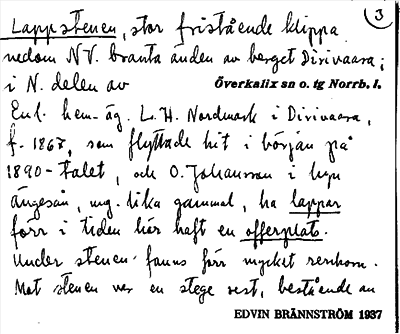 3
Lappstenen, stor fristående klippa
nedom NV. branta änden av berget Dirivaara;
i N. delen av Överkalix sn o. tg Norrb. l.
Enl. hem.-äg. L. H. Nordmark i Dirivaara,
f. 1867, som flyttade hit i början på
1890-talet, och O. Johansson i byn
ängesån, ung. lika gammal, ha lappar
förr i tiden här haft en offerplats.
Under stenen fanns förr mycket renhorn.
Mot stenen var en stege rest, bestående av
EDVIN BRÄNNSTRÖM 1937